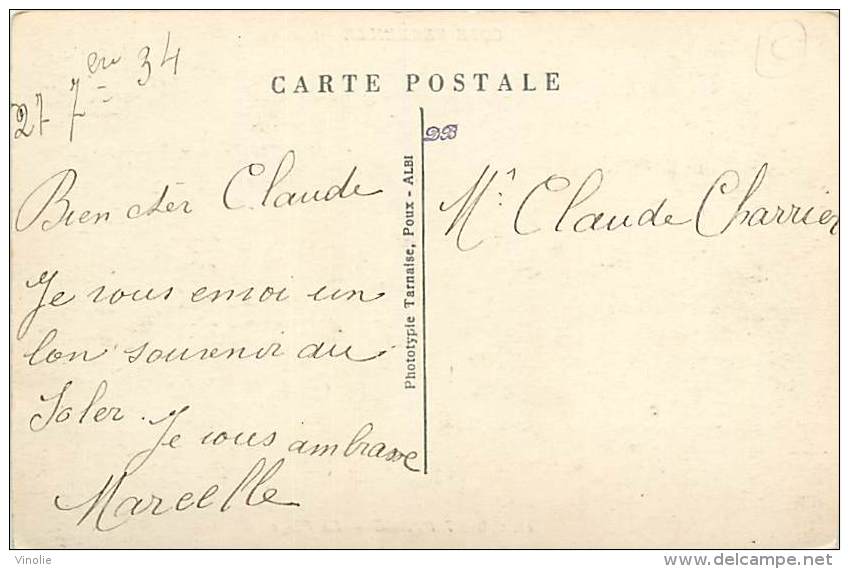 27 7ere 34
CARTE POSTALE
DB
Bien cher Claude
Je vous envoi un
bon souvenir du
Soler.
Je vous ambrasse
Marcelle
Phototypie Tarnaise, Poux - ALBI
Mr. Claude Charrier
Vinolie
delcampe.net